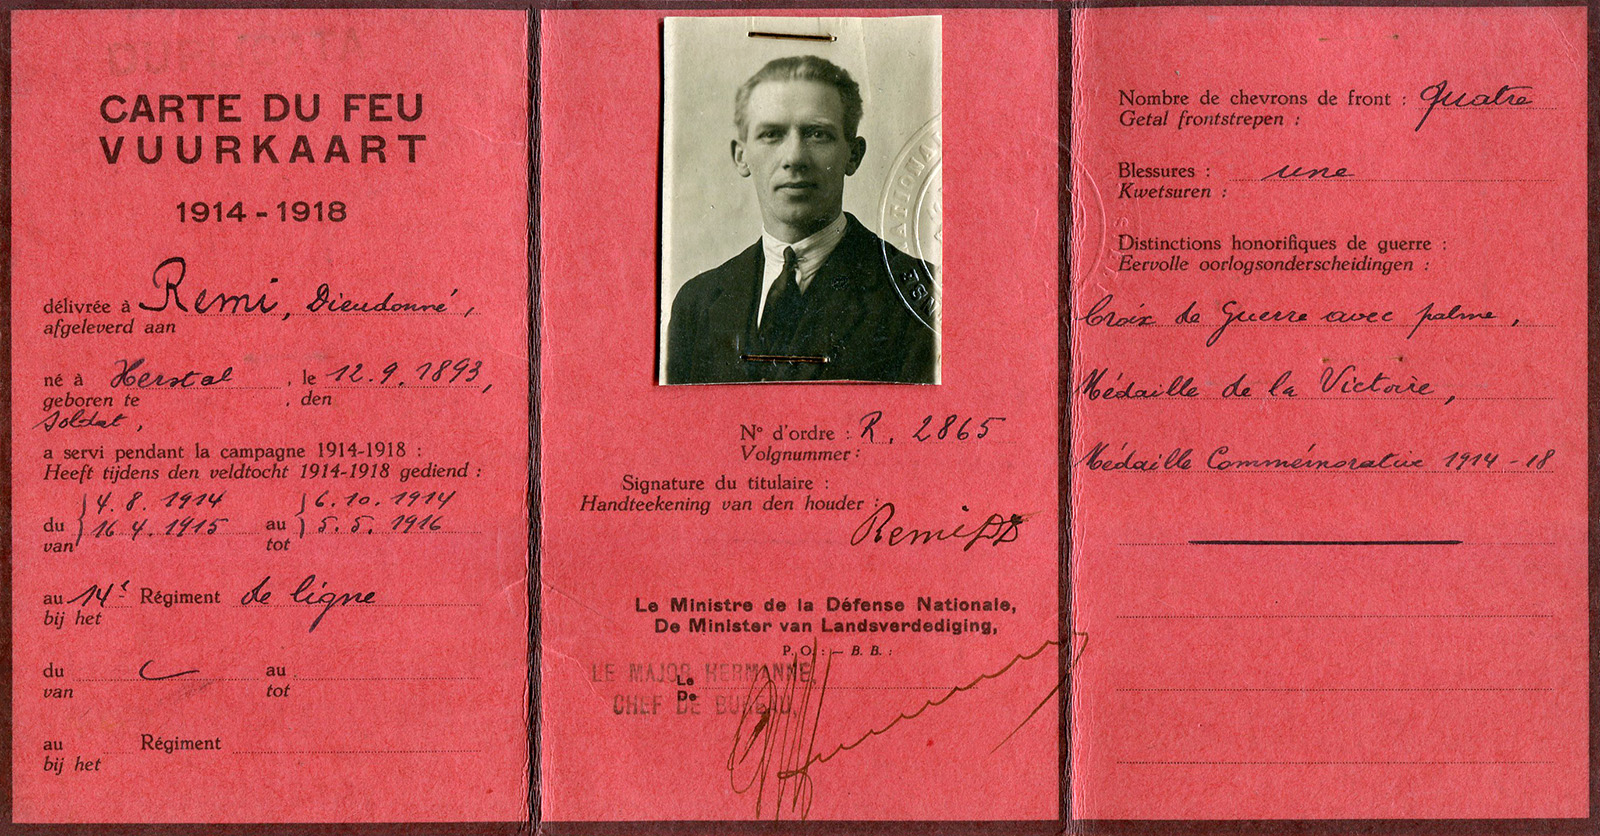 DUPLICATA
CARTE DU FEU
VUURKAART
1914 - 1918
délivrée à Remi, Dieudonné,
afgeleverd aan
né à Herstal, le 12.9.1893,
geboren te , den
soldat,
a servi pendant la campagne 1914-1918 :
Heeft tijdens den veldtocht 1914-1918 gediend :
4.8.1914 6.10.1914
du 16.4.1915 au 5.5.1916
van tot
au 14e Régiment de ligne
bij het
du au
van tot
au Régiment
bij het
N° d'ordre : R. 2865
Volgnummer :
Signature du titulaire :
Handteekening van den houder :
Remi DD
Le Ministre de la Défense Nationale,
De Minister van Landsverdediging,
P. O. : — B. B. :
LE MAJOR HERMANNE,
Le
CHEF DE BUREAU,
De
Nombre de chevrons de front : quatre
Getal frontstrepen :
Blessures : une
Kwetsuren :
Distinctions honorifiques de guerre :
Eervolle oorlogsonderscheidingen :
Croix de Guerre avec palme,
Médaille de la Victoire,
Médaille Commémorative 1914-18